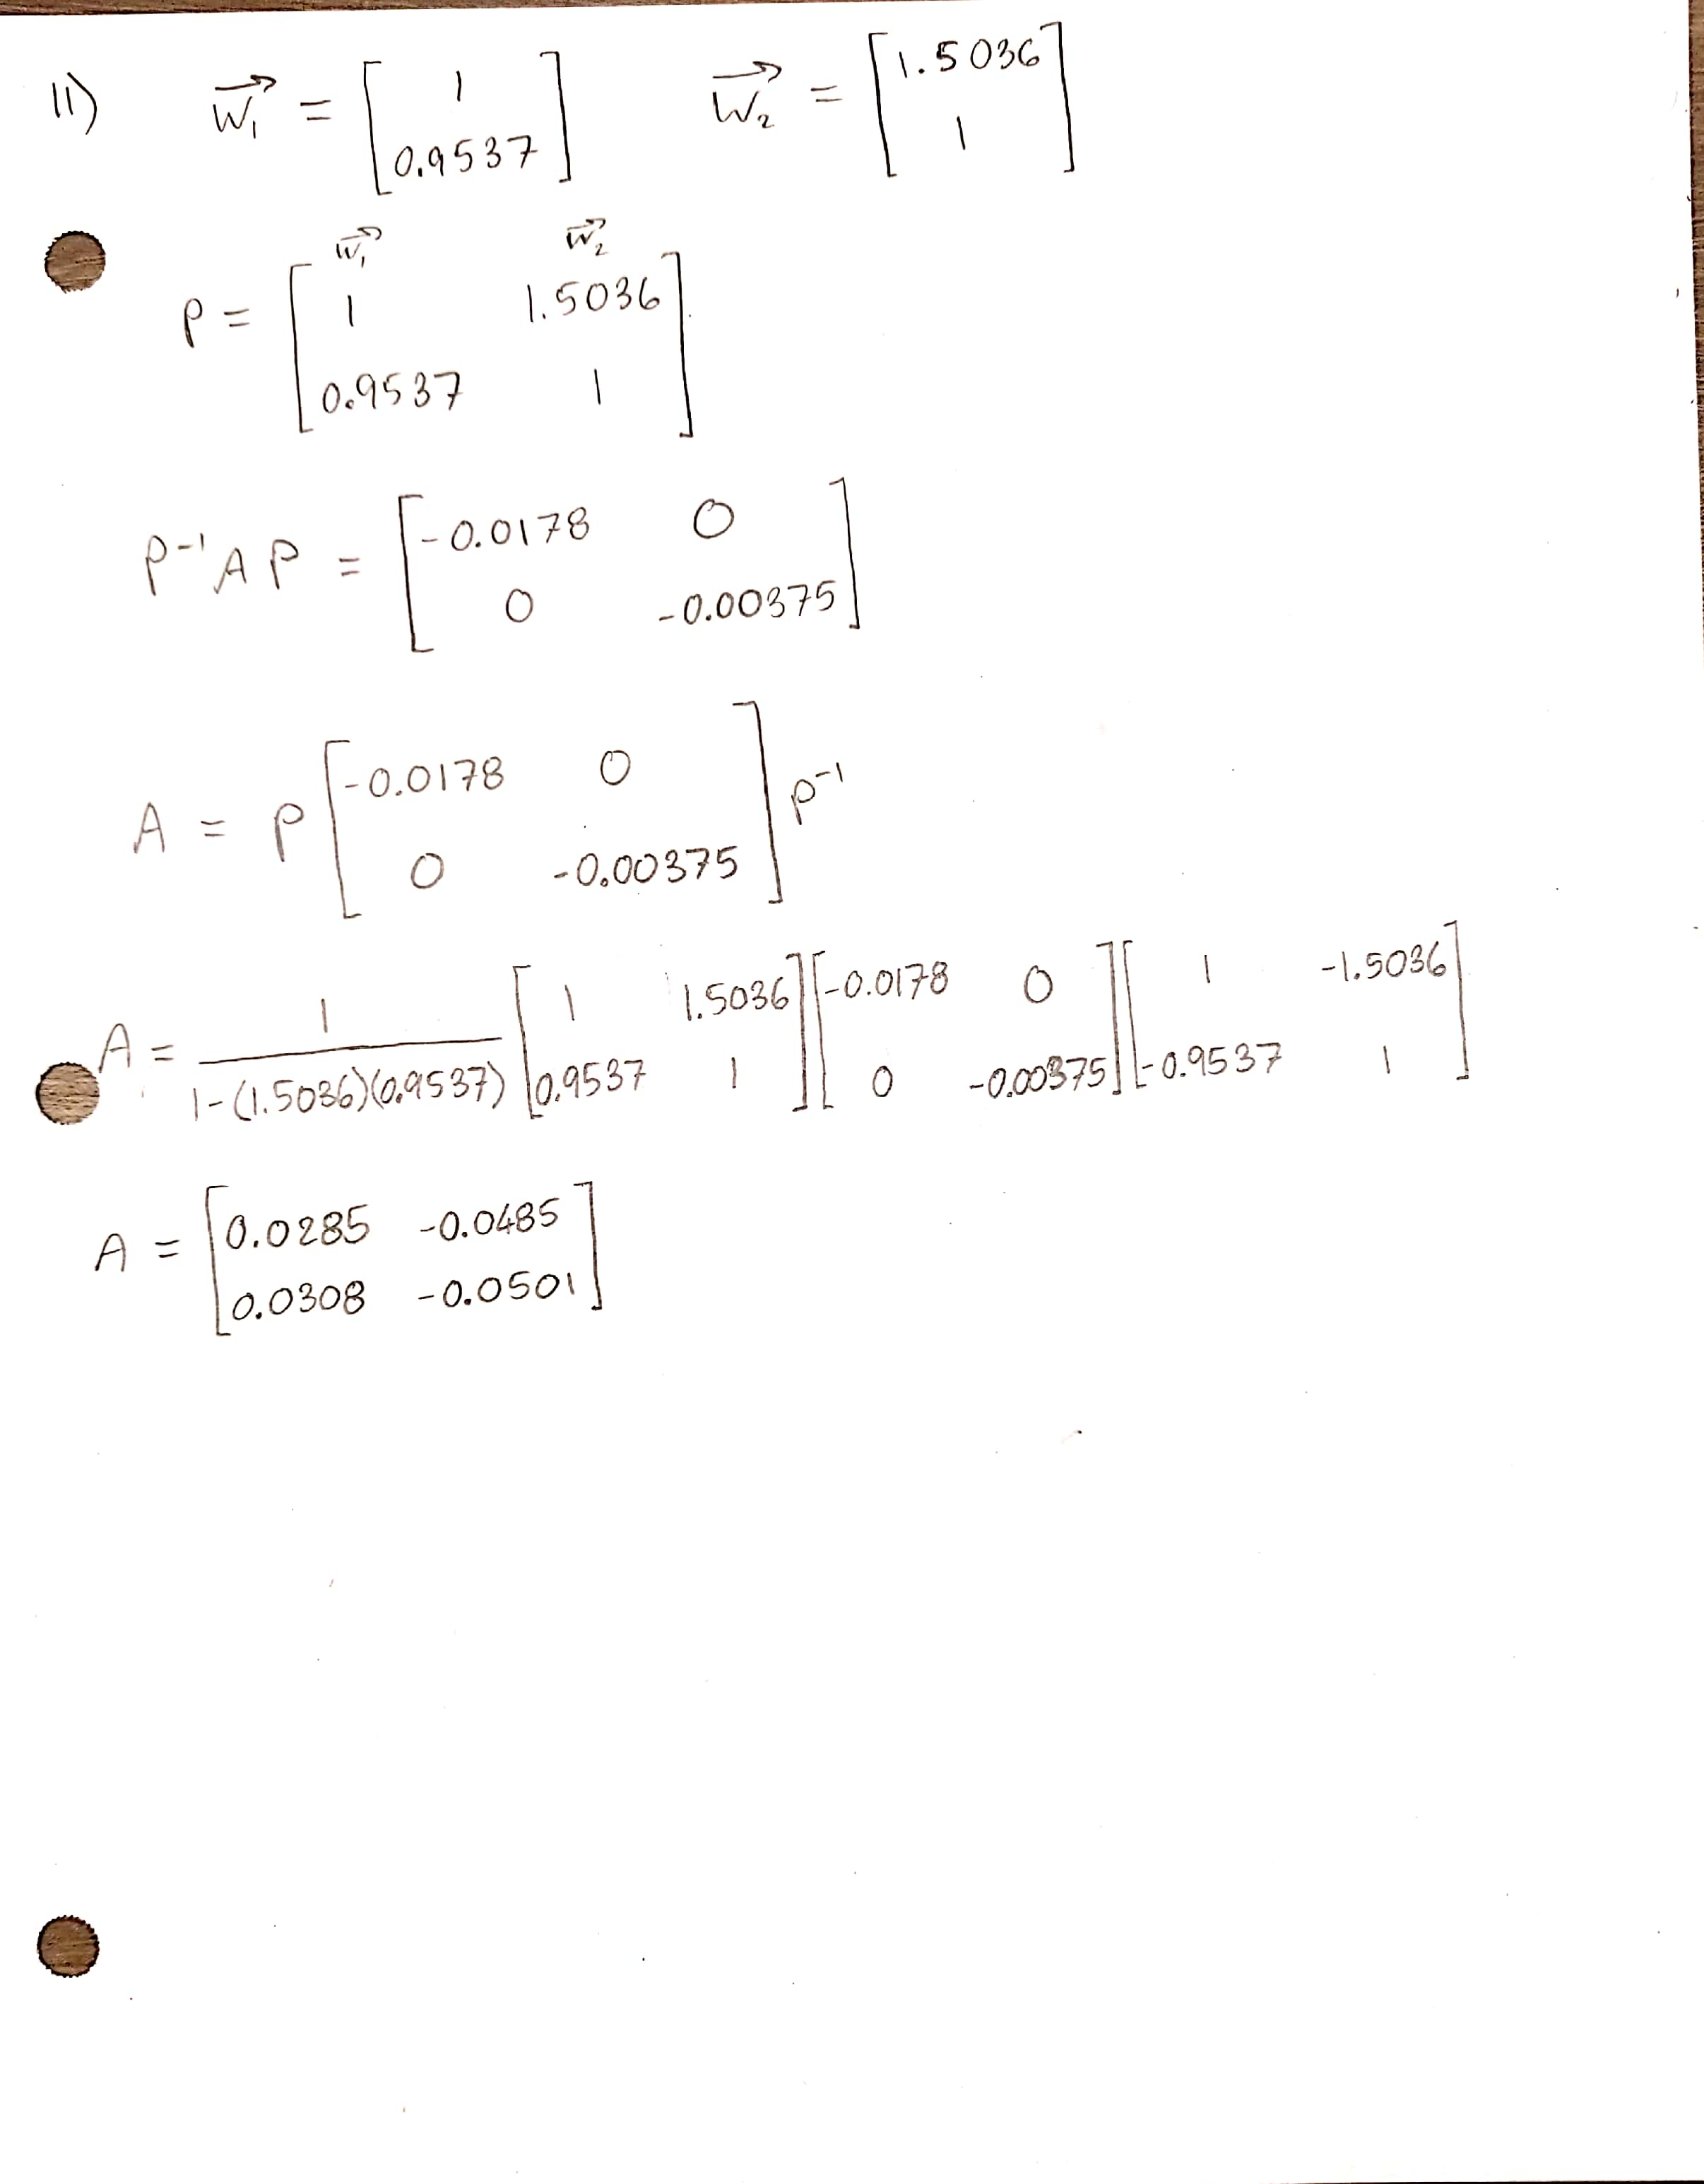 11) w₁→ = [ 1 ; 0.9537 ]  w₂→ = [ 1.5036 ; 1 ]
w₁→ w₂→
P = [ 1 1.5036 ; 0.9537 1 ]
P⁻¹AP = [ -0.0178 0 ; 0 -0.00375 ]
A = P [ -0.0178 0 ; 0 -0.00375 ] P⁻¹
A = 1 / (1-(1.5036)(0.9537)) [ 1 1.5036 ; 0.9537 1 ] [ -0.0178 0 ; 0 -0.00375 ] [ 1 -1.5036 ; -0.9537 1 ]
A = [ 0.0285 -0.0485 ; 0.0308 -0.0501 ]